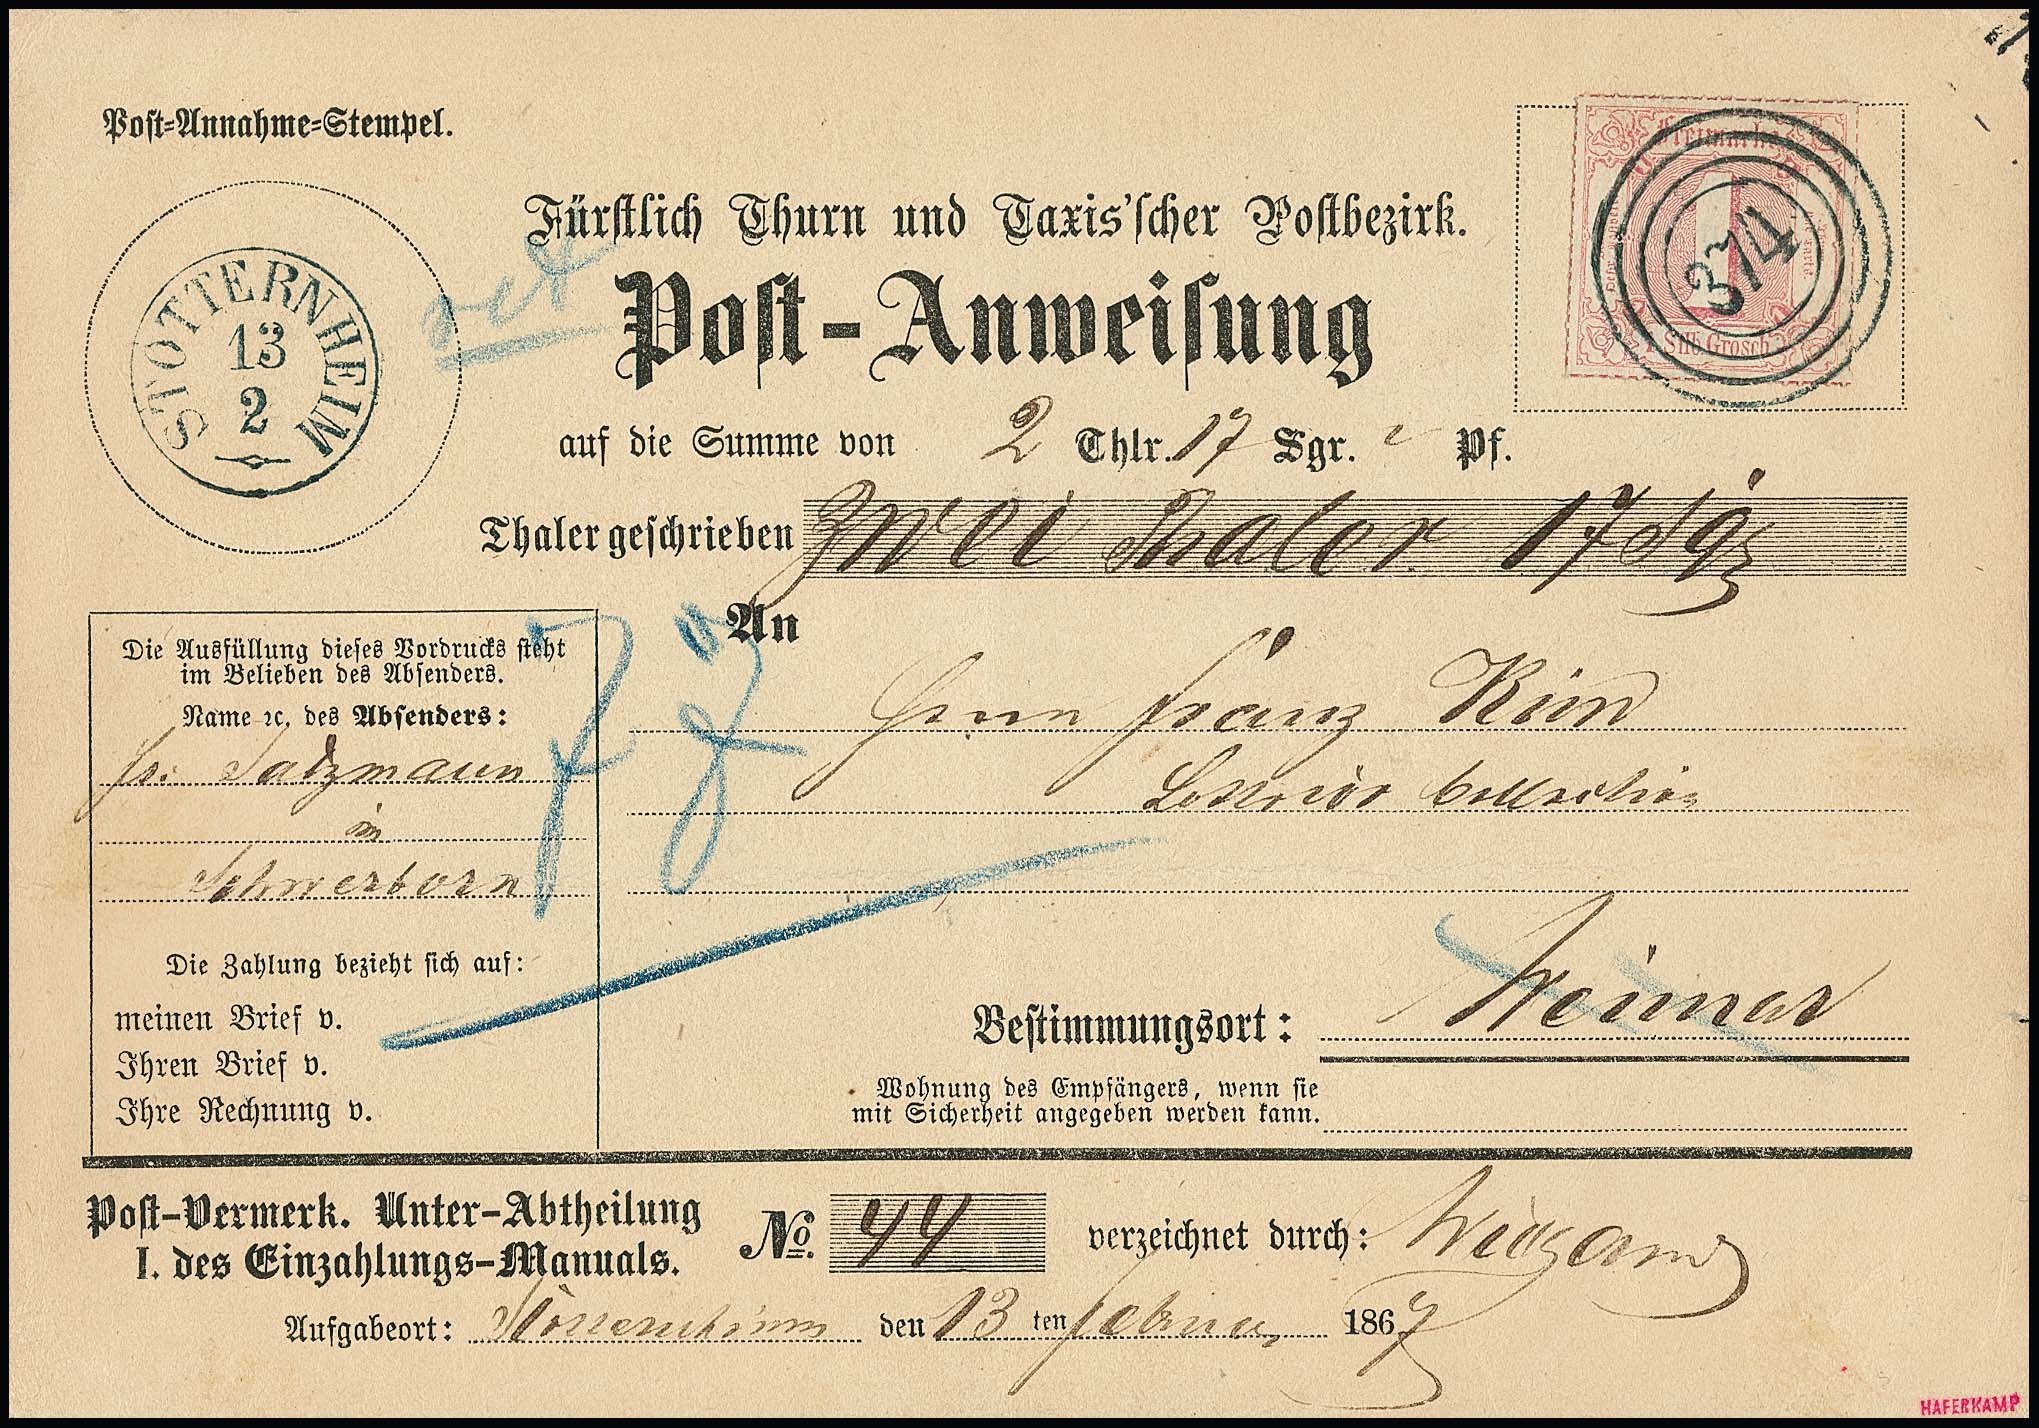 Post-Annahme-Stempel.
STOTTERNHEIM
13
2
Freimarke
1
Silb. Grosch.
374
Fürstlich Thurn und Taxis'scher Postbezirk.
Post-Anweisung
auf die Summe von 2 Thlr. 17 Sgr. Pf.
Thaler geschrieben zwei Thaler 17 Sgr
An
Herrn Franz
Die Ausfüllung dieses Vordrucks steht
im Belieben des Absenders.
Name ꝛc. des Absenders:
Fr. Salzmann
in
Schwerborn
Die Zahlung bezieht sich auf:
meinen Brief v.
Ihren Brief v.
Ihre Rechnung v.
Bestimmungsort: Weimar
Wohnung des Empfängers, wenn sie
mit Sicherheit angegeben werden kann.
Post-Vermerk. Unter-Abtheilung
I. des Einzahlungs-Manuals.
No. 44 verzeichnet durch: Weigand
Aufgabeort: Stotternheim den 13 ten Februar 1867
HAFERKAMP